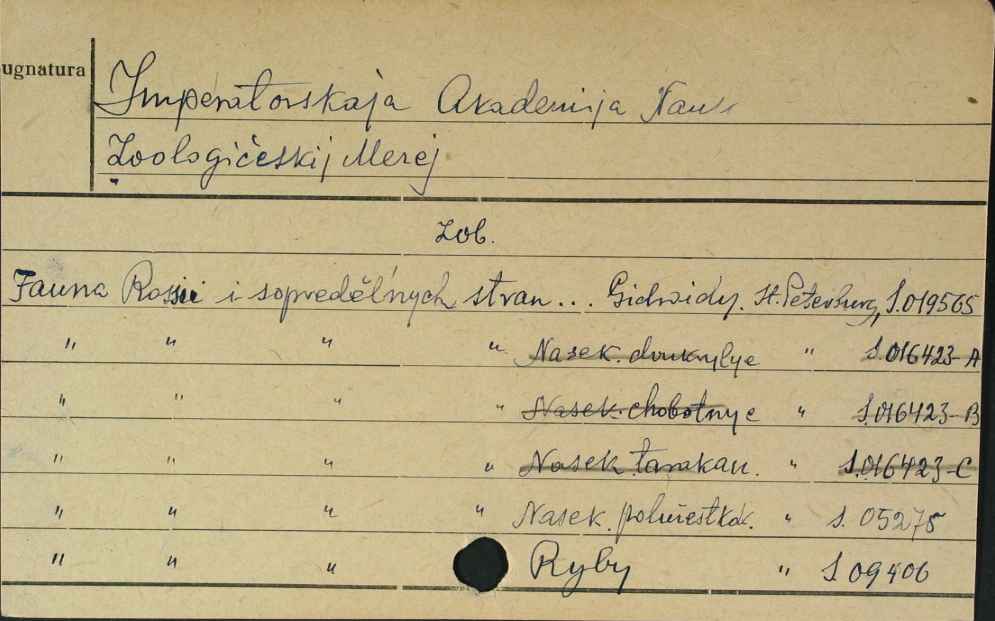 ugnatura Imperatorskaja Akademija Nauk
Zoologičeskij Merej
Zob.
Fauna Rossii i sopreděl'nych stran... Gidroidy. St. Peterburg, S.019565
" " " " Nasek. dvukrylye " S.016423-A
" " " " Nasek. chobotnye " S.016423-B
" " " " Nasek. tarakan. " S.016423-C
" " " " Nasek. " S. 05275
" " " Ryby " S 09406